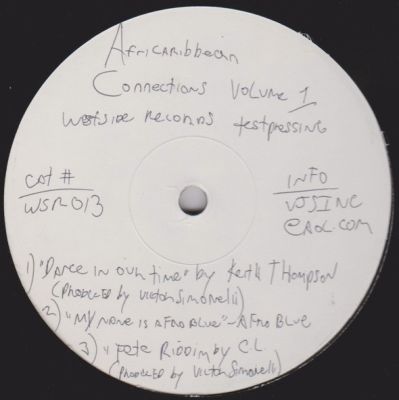 Africaribbean
Connections Volume 1
Westside Records testpressing
cat #
WSR013
INFO
VJSINC
@AOL.COM
1) "Dance in our time" by Keith Thompson
(Produced by Victor Simonelli)
2) "My name is Afro Blue" - Afro Blue
3) "Fete Riddim by C.L.
(Produced by Victor Simonelli)